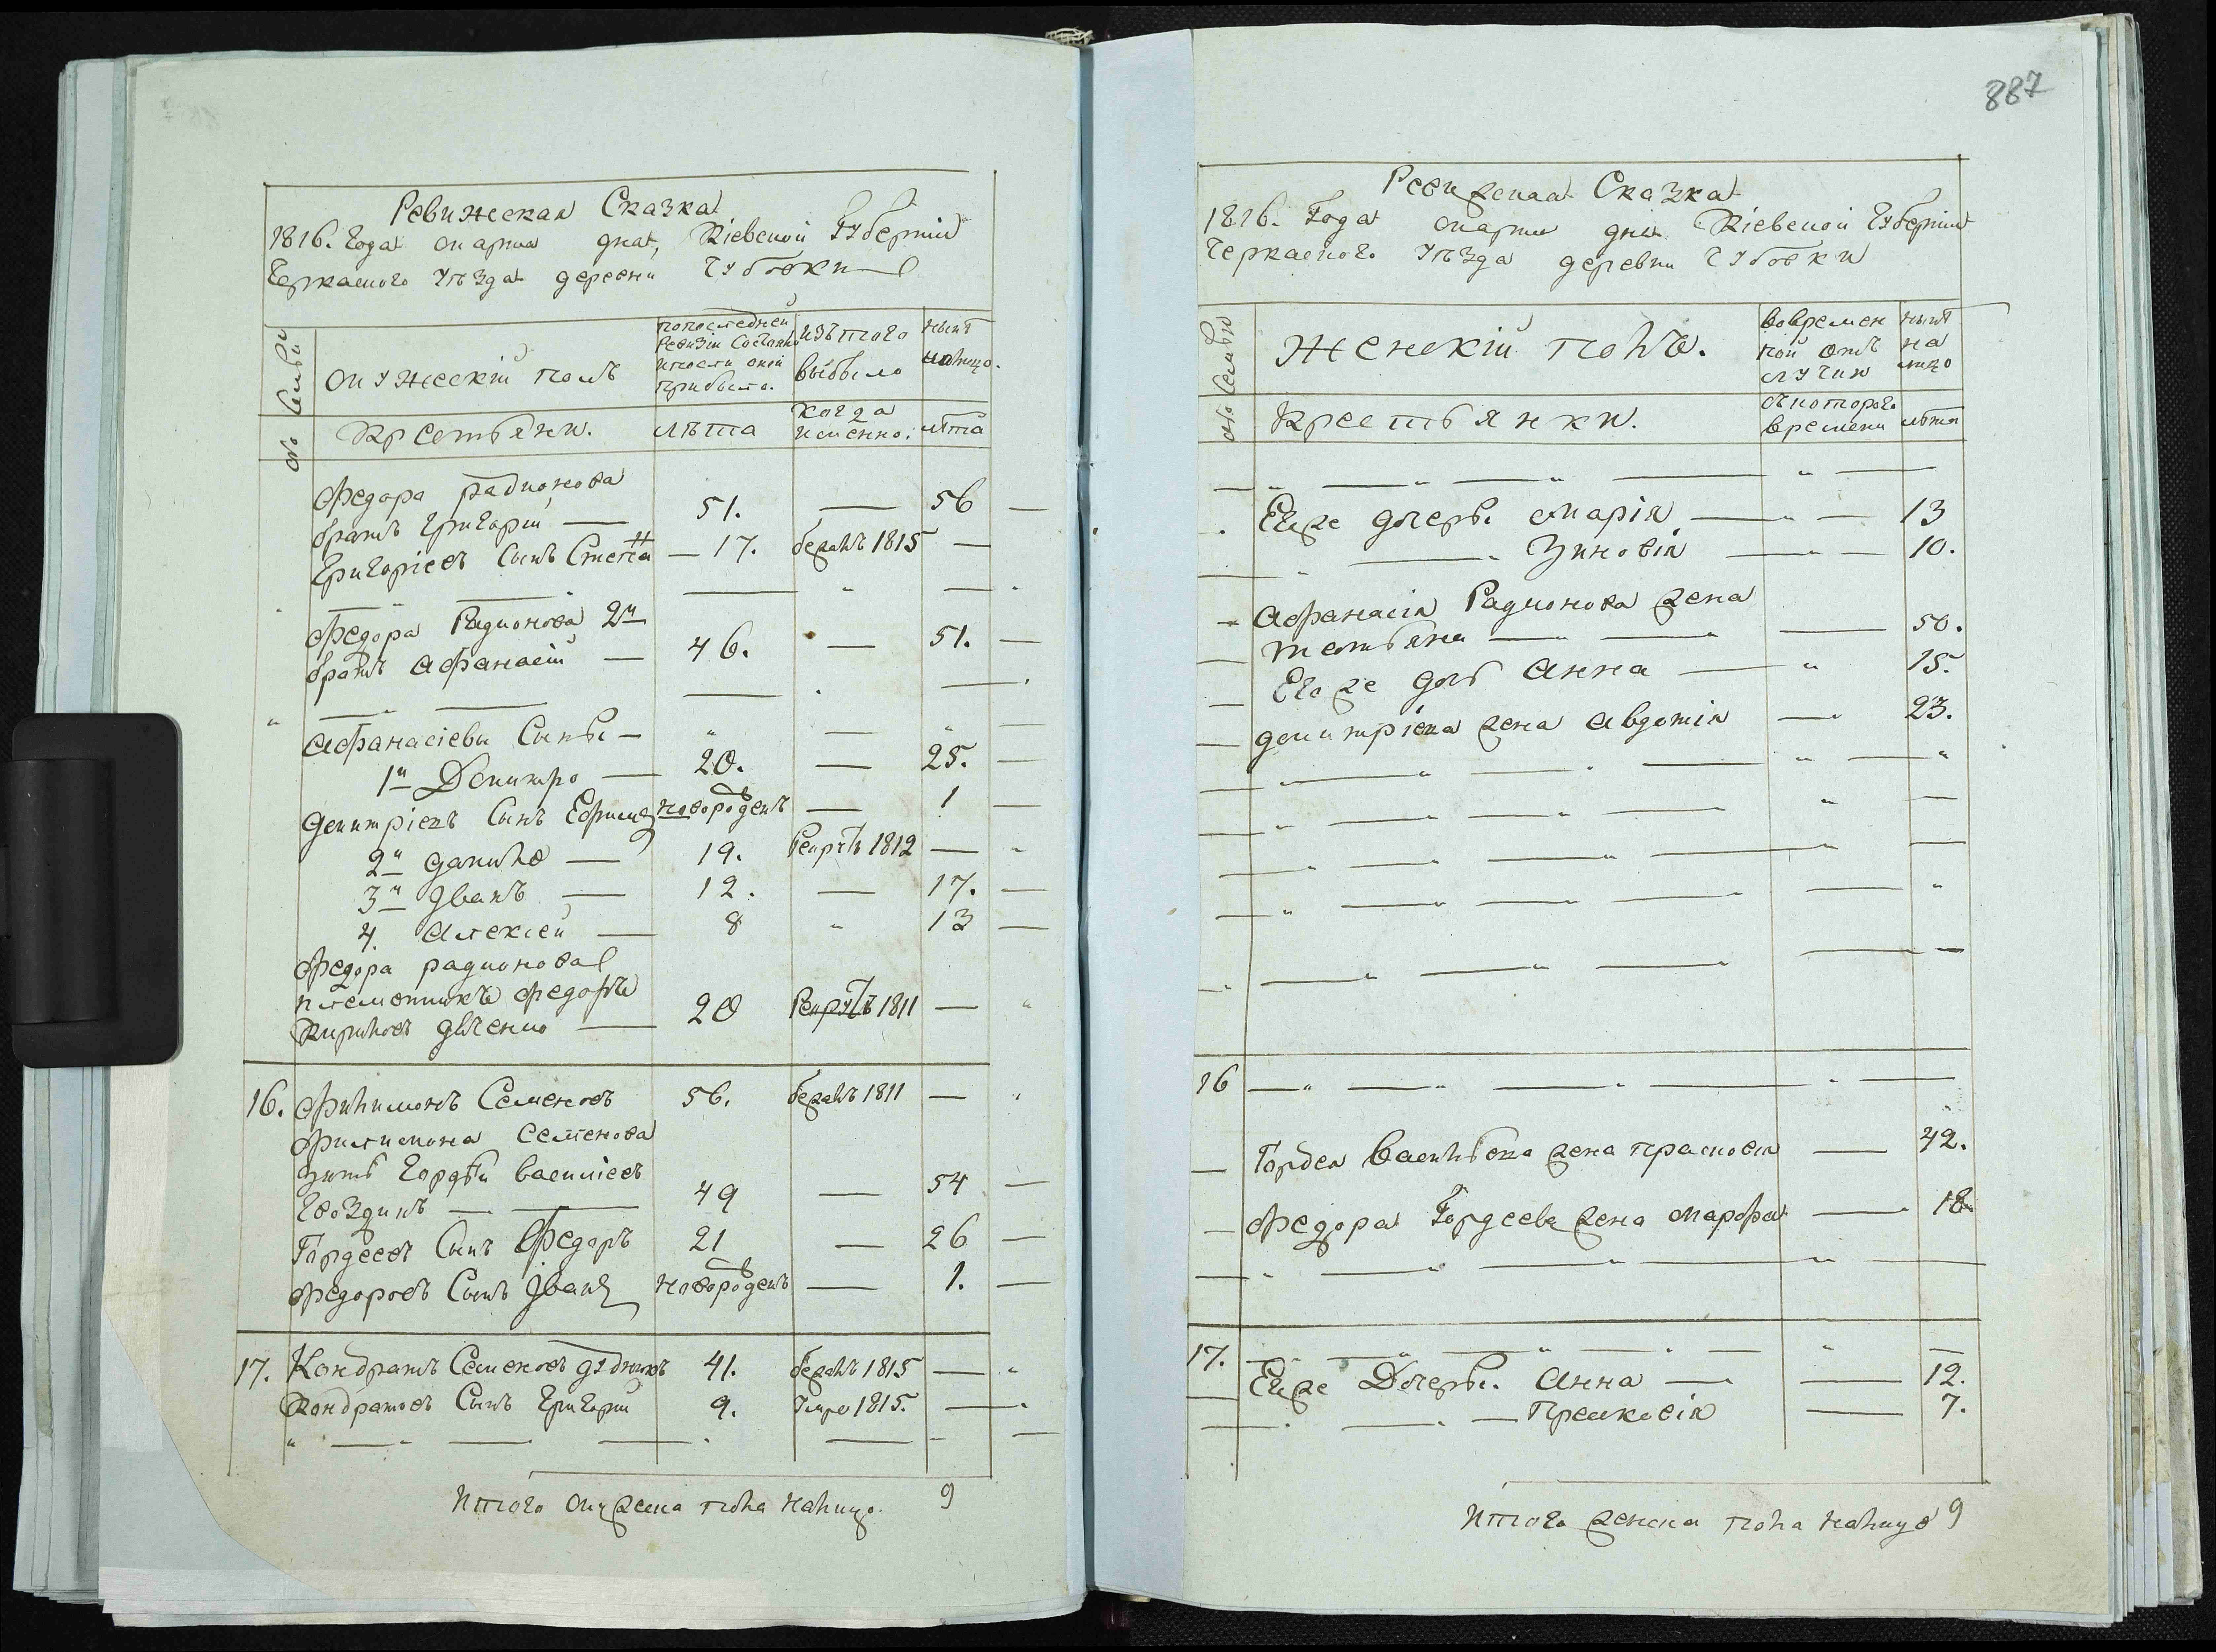 Ревижская Сказка
1816. Года марта дня, Киевской Губернии
Черкаского Уѣзда деревни Губовки
№ Семьи
мужескій полъ
попоследней
Ревизіи Состояло
ипосли оной
прибыло.
изътого
выбыло
нынѣ
налицо.
№
Крестьяни.
лѣта
когда
именно.
лѣта
Федора радионова
братъ Григорій — 51. — 56 —
Григоріевъ Сынъ Степа — 17. бежалъ 1815 —
Федора Радионова 2й
братъ Афанасій — 46. — 51. —
Афанасіевы Сыны —
1й Дмитро — 20. — 25. —
Дмитріевъ Сынъ Ефимъ новорожденъ — 1 —
2й Данило — 19. Рекрутъ 1812 —
3й Иванъ — 12. — 17. —
4. Алексей — 8 13 —
Федора радионова
племенникъ Федоръ
Кириловъ — 20 Рекрутъ 1811 —
16. Филимонъ Семеновъ 56. бежалъ 1811 —
Филимона Семенова
зять Гордѣй василіевъ
Гвоздикъ — 49 — 54 —
Гордеевъ Сынъ Федоръ 21 — 26 —
Федоровъ Сынъ Иванъ новорожденъ — 1. —
17. Кондратъ Семеновъ 41. бежалъ 1815 —
Кондратовъ Сынъ Григорій 9. Умре 1815. —
Итого мужеска пола налицо. 9
887
Ревижская Сказка
1816. Года марта дня Киевской Губерніи
Черкаского Уѣзда деревни Губовки
№ Семьи
Женскій полъ.
вовремен
ной отъ
лучки
нынѣ
на
лицо
№
Крестьянки.
скоторого
времени
лѣта
Егоже дочери марія — 13
Зиновія — 10.
Афанасія Радионова жена
татьяна — 50.
Егоже дочь Анна — 15.
дмитріева жена Авдотія — 23.
16
Гордея Васильева жена прасковія — 42.
Федора Гордеева жена марфа — 18
17.
Егоже Дочери. Анна — 12.
— Прасковія — 7.
Итого женска пола налицо 9